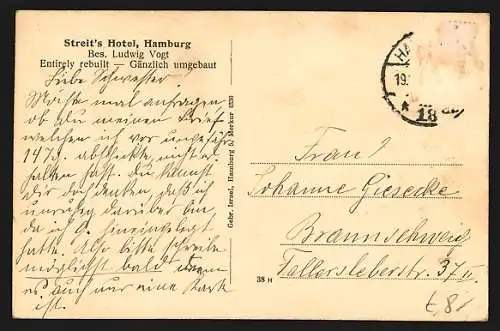 Streit's Hotel, Hamburg
Bes. Ludwig Vogt
Entirely rebuilt — Gänzlich umgebaut
Liebe Schwester!
Möchte mal anfragen
ob du meinen Brief
welchen ich vor ungefähr
14 T. abschickte nicht er-
halten hast. Du kannst
Dir doch denken, daß ich
unruhig darüber bin,
da ich hineingelegt
hatte. Also bitte schreibe
möglichst bald wenn
es auch nur eine Karte
ist.
Gebr. Israel, Hamburg 5, Merkur 6330
38 H
HA
19.
* 18
Frau
Johanne Giesecke
Braunschweig
Fallersleberstr. 37 II.